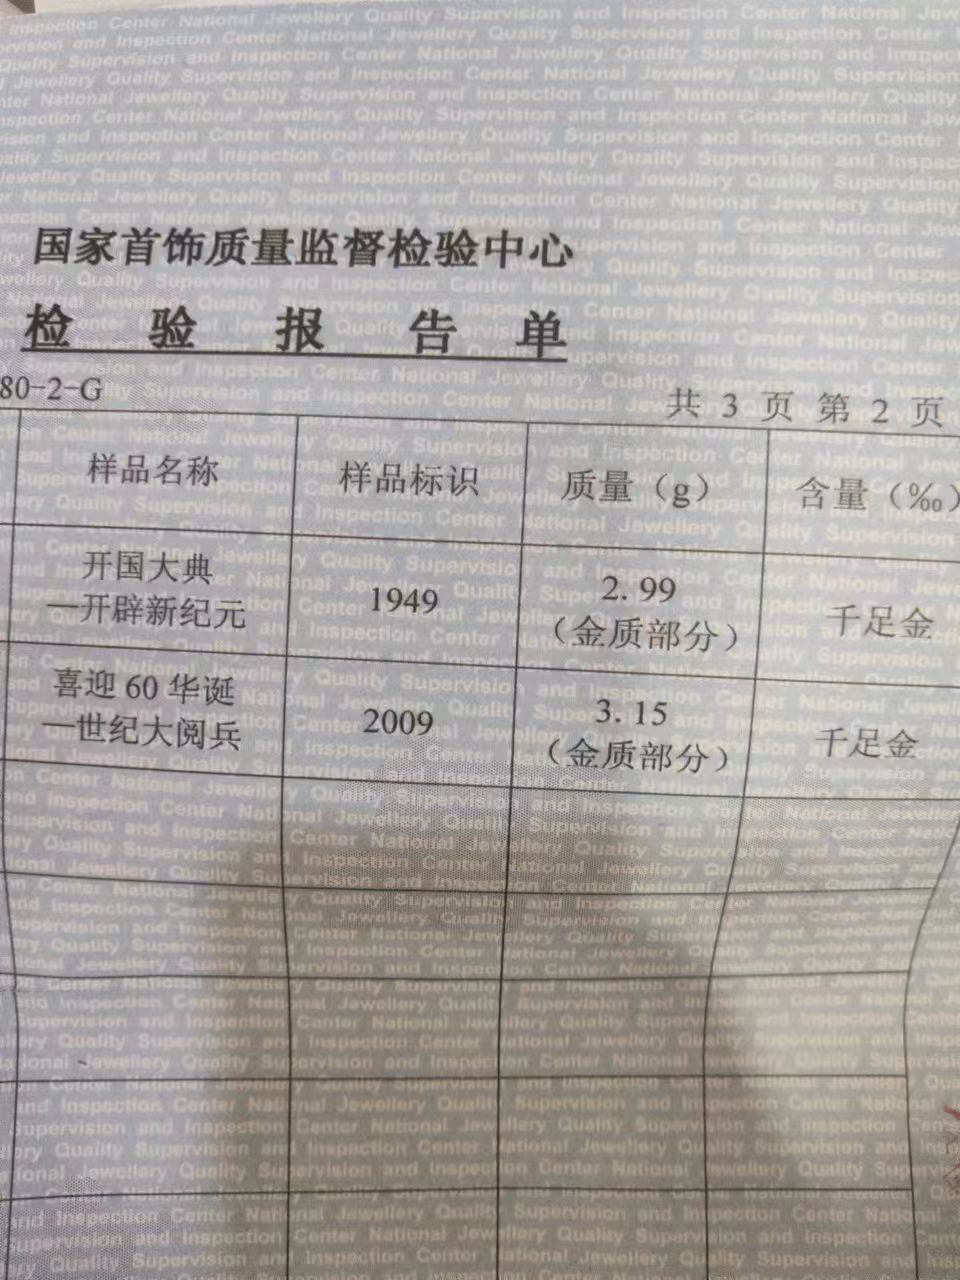 国家首饰质量监督检验中心
检验报告单
80-2-G
共 3 页 第 2 页
样品名称 样品标识 质量（g） 含量（‰）
开国大典
—开辟新纪元
1949
2.99
（金质部分）
千足金
喜迎 60 华诞
—世纪大阅兵
2009
3.15
（金质部分）
千足金
National Jewellery Quality Supervision and Inspection Center